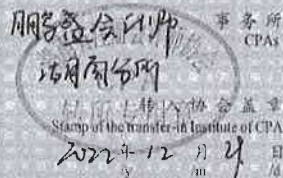 鹏盛会计师 事务所
CPAs
湛同分所
转入协会盖章
Stamp of the transfer-in Institute of CPA
2022年12月21日
y m /d